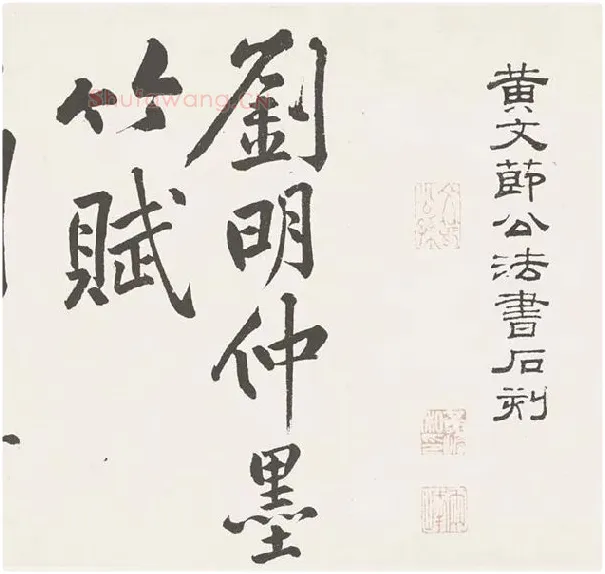 黄文節公法書石刻
劉明仲墨
竹賦
Shufawang.cn